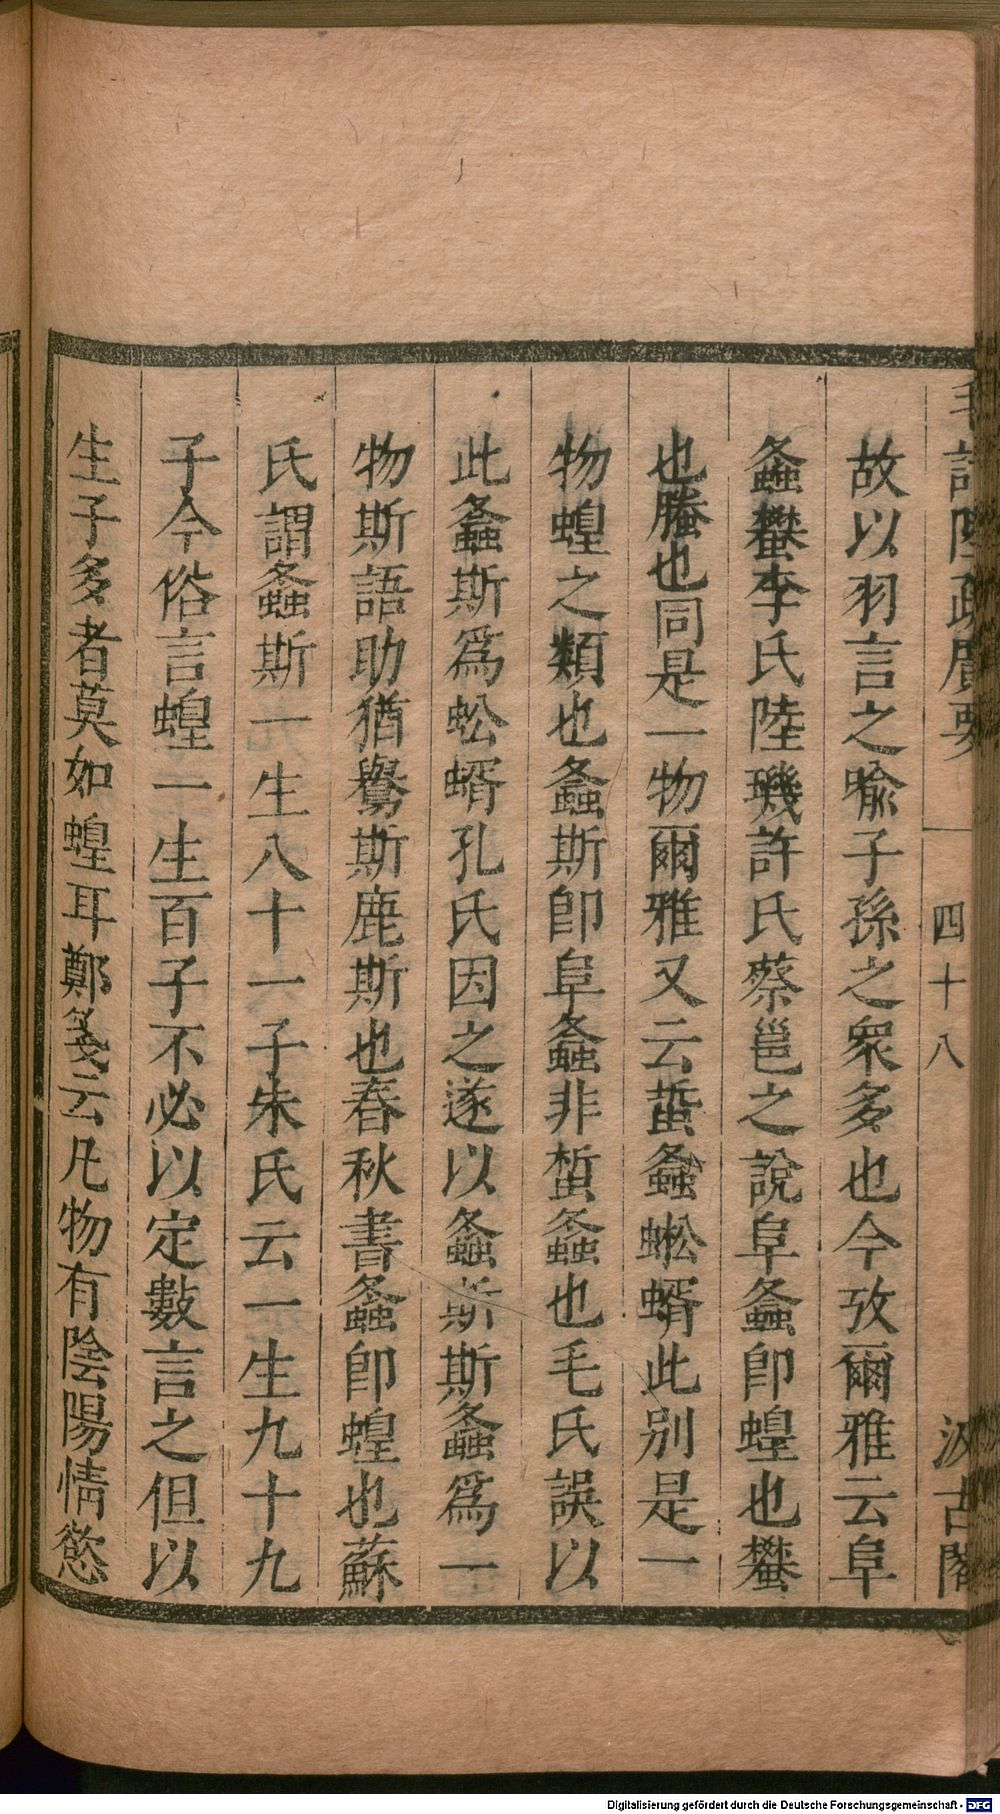 毛詩陸疏廣要 四十八 汲古閣
故以羽言之喻子孫之衆多也今攷爾雅云阜
螽蠜李氏陸璣許氏蔡邕之說阜螽卽蝗也蠜
也螣也同是一物爾雅又云蜇螽蜙蝑此別是一
物蝗之類也螽斯卽阜螽非蜇螽也毛氏誤以
此螽斯爲蚣蝑孔氏因之遂以螽斯斯螽爲一
物斯語助猶鸒斯鹿斯也春秋書螽卽蝗也蘇
氏謂螽斯一生八十一子朱氏云一生九十九
子今俗言蝗一生百子不必以定數言之但以
生子多者莫如蝗耳鄭箋云凡物有陰陽情慾
Digitalisierung gefördert durch die Deutsche Forschungsgemeinschaft - DFG